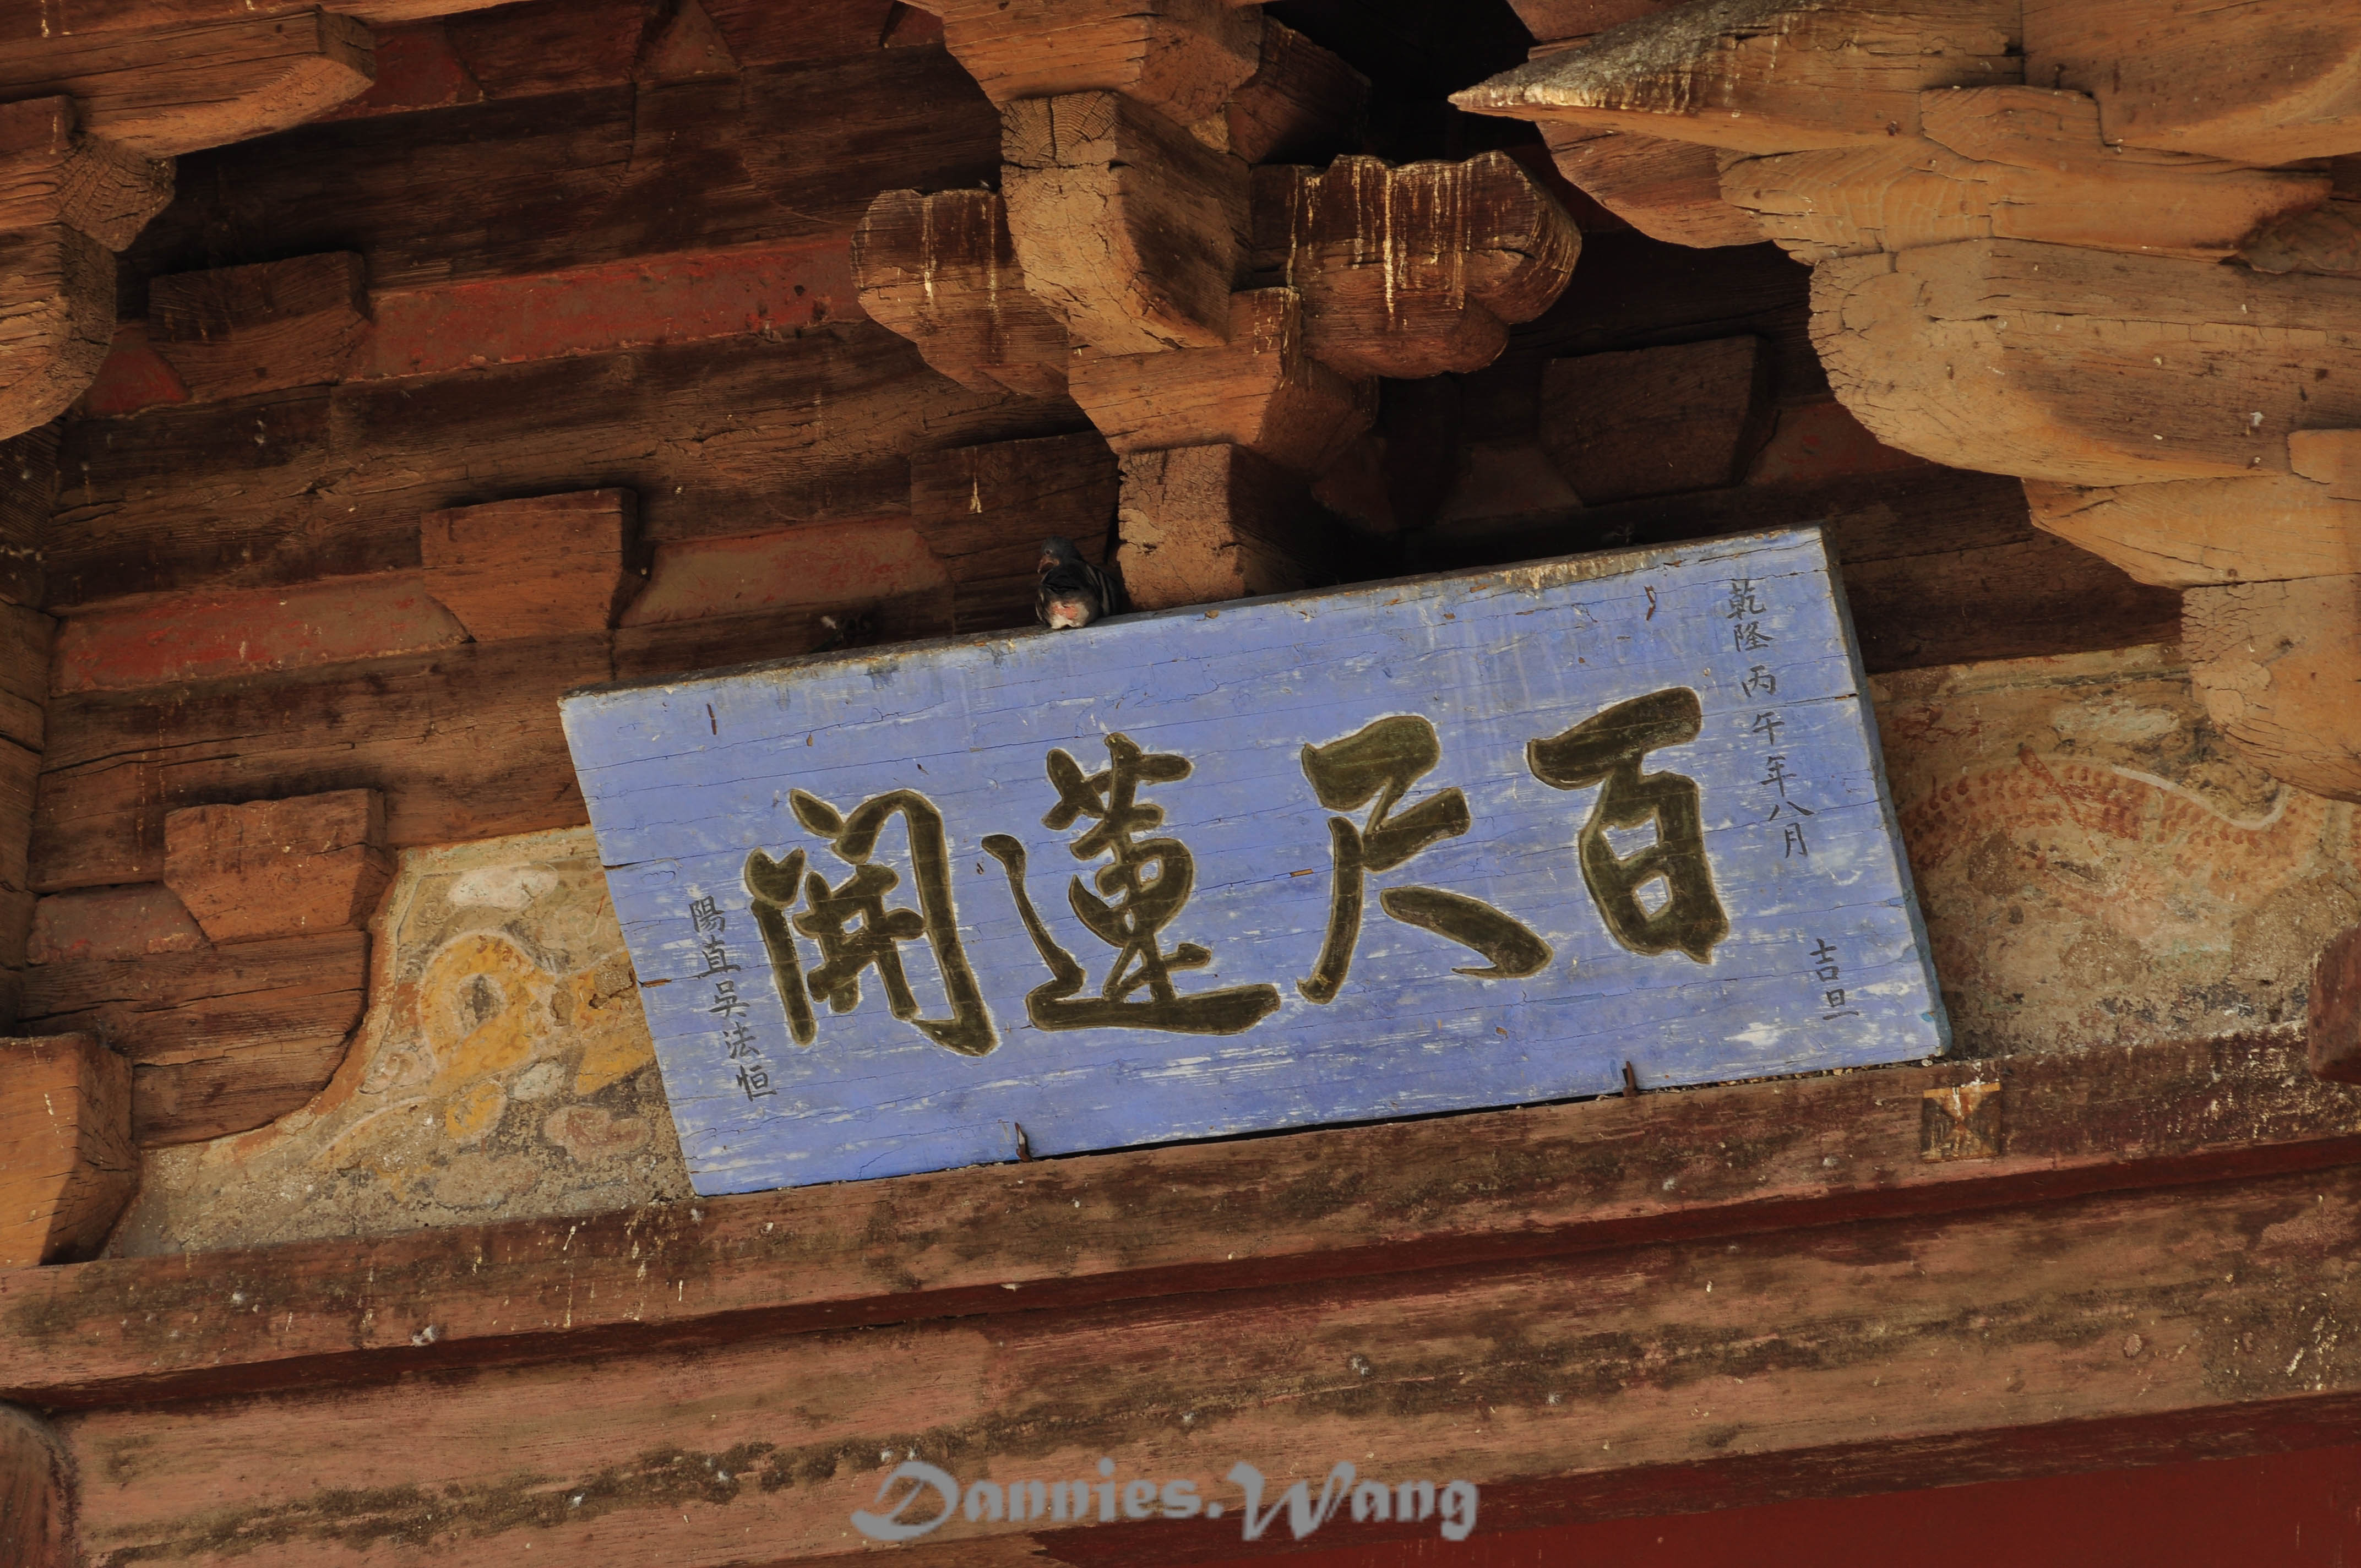 乾隆丙午年八月 吉旦
百尺蓮開
陽直吳法恒
Dannies.Wang